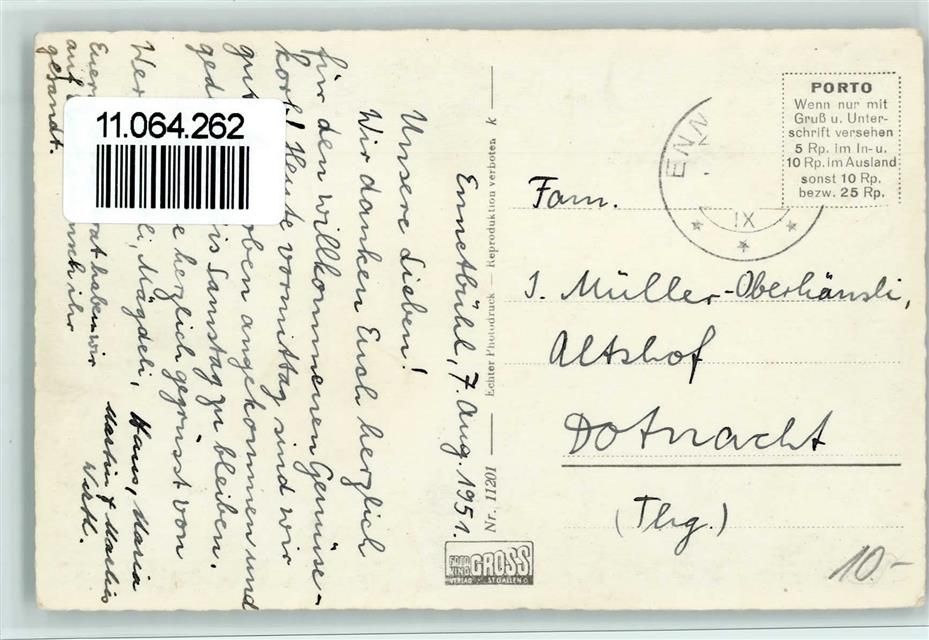 11.064.262
Ennetbühl, 7. Aug. 1951.
Unsere Lieben!
Wir danken Euch herzlich
für den willkommenen Gemüse-
korb! Heute vormittag sind wir
gut oben angekommen und
ged is Samstag zu bleiben.
herzlich gegrüsst von
Wer li, Mägdeli, Hans, Maria
Martin & Marlies
Euern rat haben wir
auf nsch ihr
gesandt.
Nr. 11201 Echter Photodruck — Reproduktion verboten k
FOTO KINO GROSS
VERLAG ST. GALLEN O
ENN
IX
PORTO
Wenn nur mit
Gruß u. Unter-
schrift versehen
5 Rp. im In- u.
10 Rp. im Ausland
sonst 10 Rp.
bezw. 25 Rp.
Fam.
J. Müller-Oberhänsli,
Altshof
Dotnacht
(Thg.)
10.-